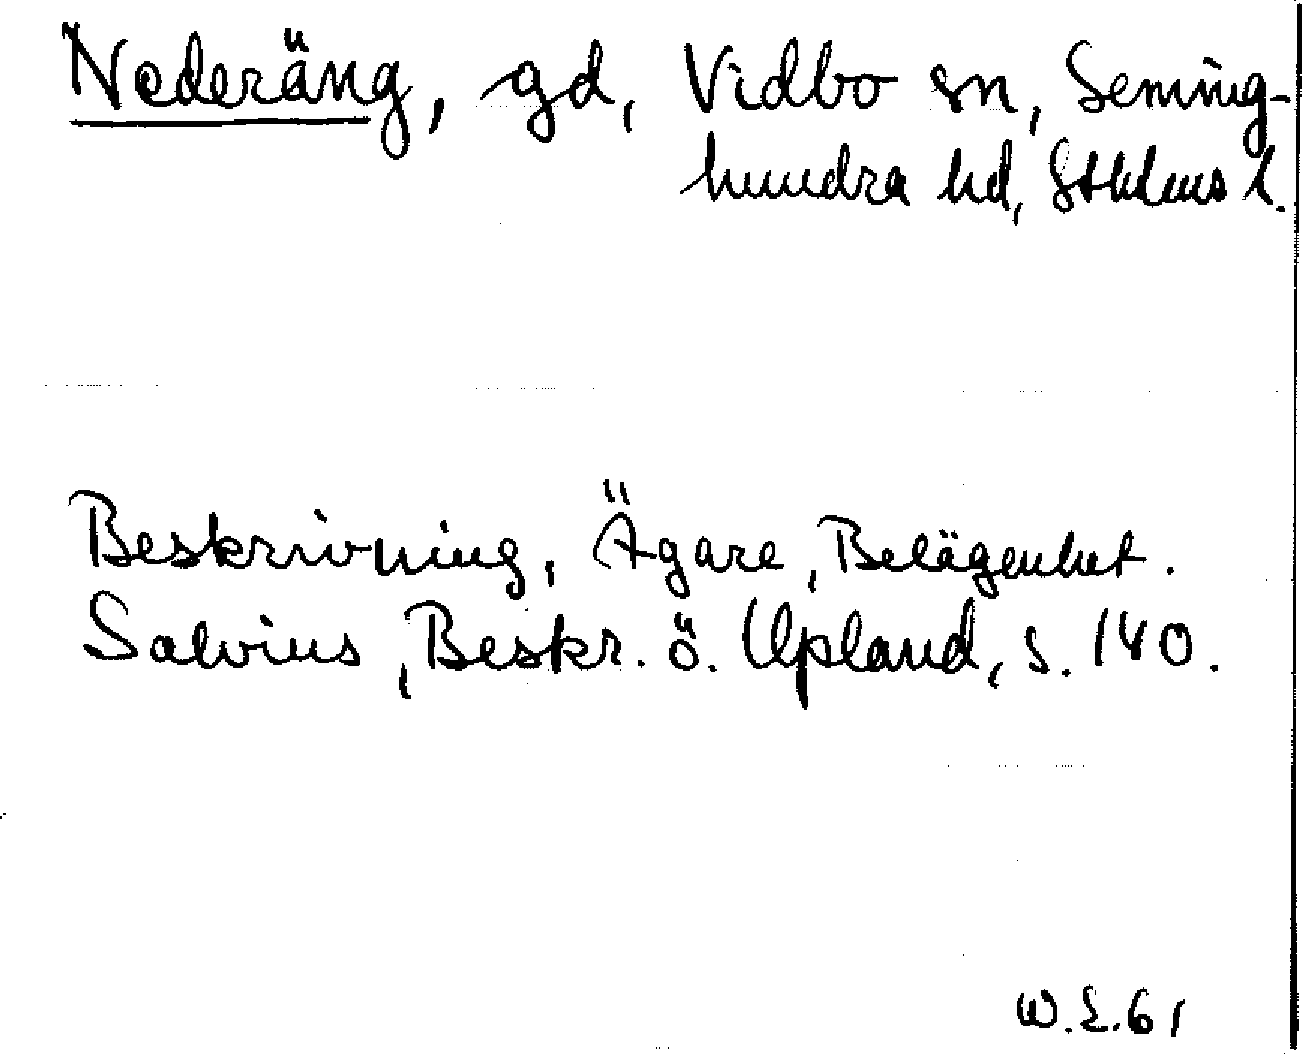 Nederäng, gd, Vidbo sn, Seming-
hundra hd, Sthlms l.
Beskrivning, Ägare, Belägenhet.
Salvius, Beskr. ö. Upland, s. 140.
W.L. 61